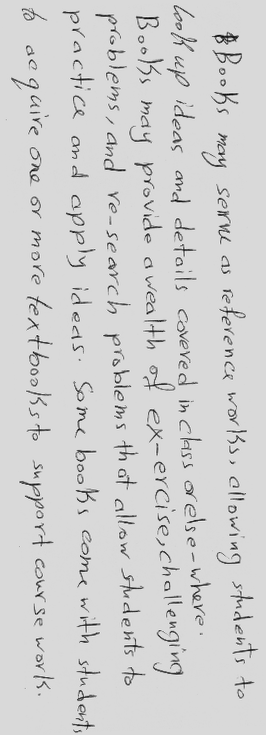 Books may serve as reference works, allowing students to
look up ideas and details covered in class orelse-where.
Books may provide a wealth of ex-ercise, challenging
problems, and re-search problems that allow students to
practice and apply ideas. Some books come with students
to acquire one or more textbooks to support course work.